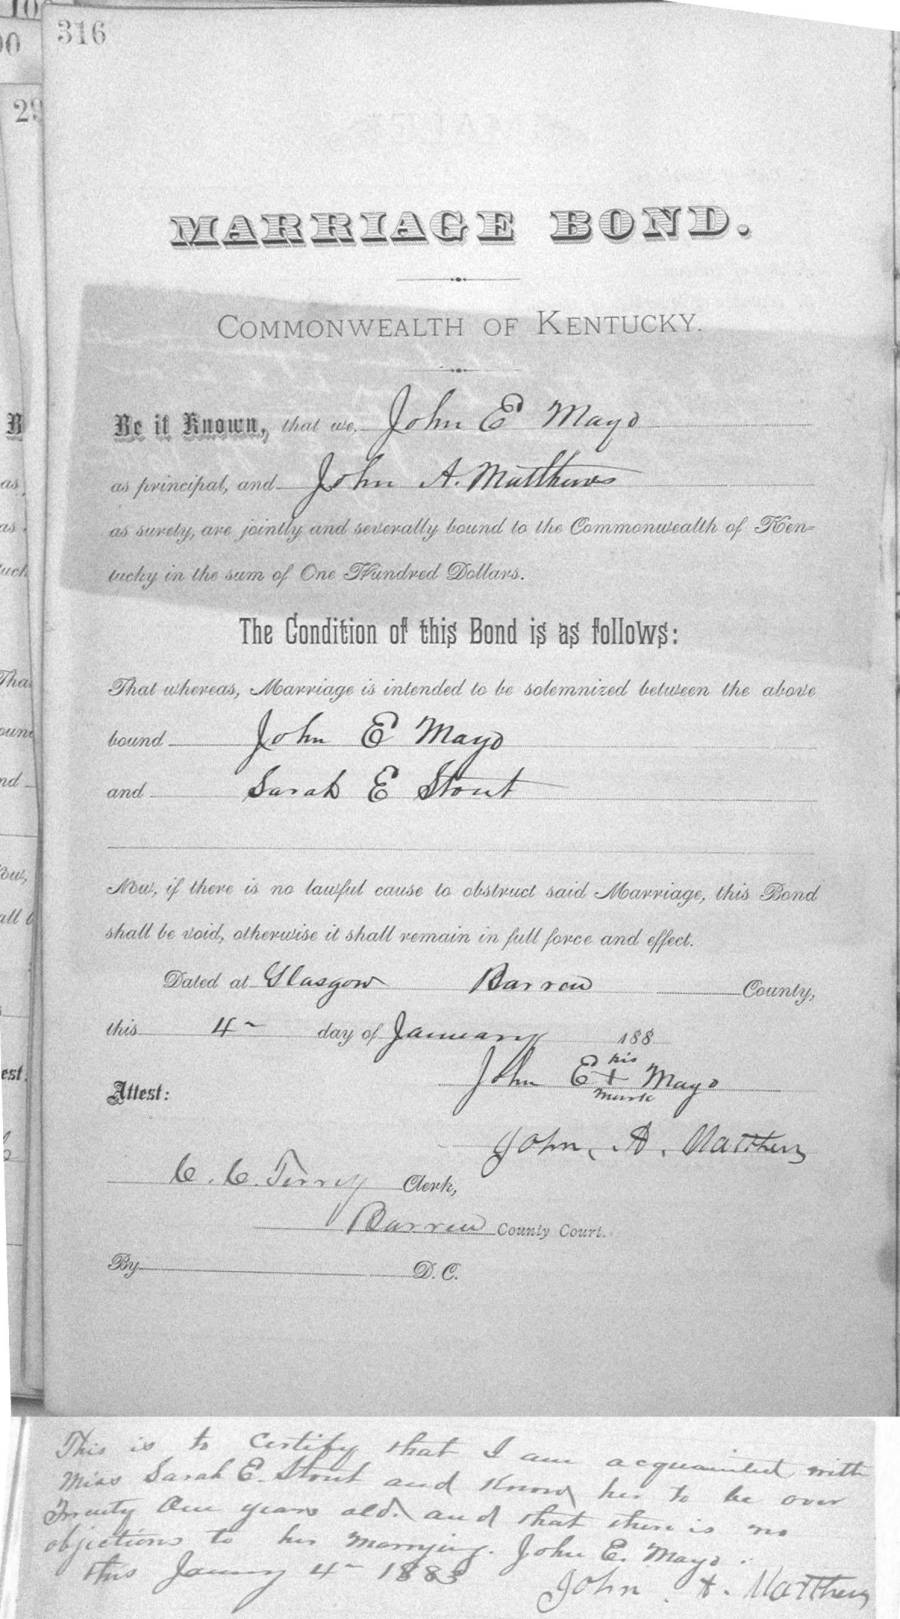 316
MARRIAGE BOND.
COMMONWEALTH OF KENTUCKY.
Be it Known, that we, John E Mayo
as principal, and John A. Matthews
as surety, are jointly and severally bound to the Commonwealth of Ken=
tucky in the sum of One Hundred Dollars.
The Condition of this Bond is as follows:
That whereas, Marriage is intended to be solemnized between the above
bound John E Mayo
and Sarah E Stout
Now, if there is no lawful cause to obstruct said Marriage, this Bond
shall be void, otherwise it shall remain in full force and effect.
Dated at Glasgow Barren County,
this 4 day of January 188
his
John E + Mayo
mark
Attest:
John, A. Matthews
C. C. Terry Clerk,
Barren County Court.
By D. C.
This is to certify that I am acquainted with
Miss Sarah E. Stout and know her to be over
Twenty One years old. and that there is no
objections to her marrying. John E. Mayo.
this January 4 1883
John A. Matthews